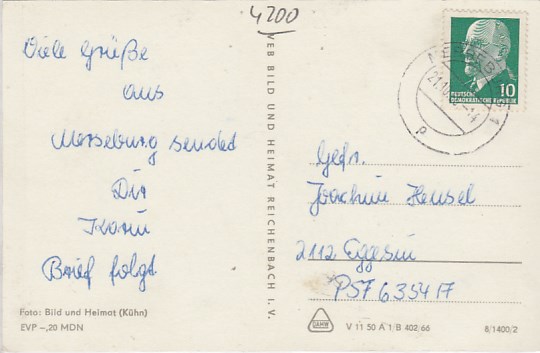 4200
Viele Grüße
aus
Merseburg sendet
Dir
Karin
Brief folgt
Foto: Bild und Heimat (Kühn)
EVP –,20 MDN
VEB BILD UND HEIMAT REICHENBACH I. V.
10
DEUTSCHE
DEMOKRATISCHE REPUBLIK
Gefr.
Joachim Hensel
2112 Eggesin
PSF 63547
V 11 50 A 1/B 402/66
8/1400/2